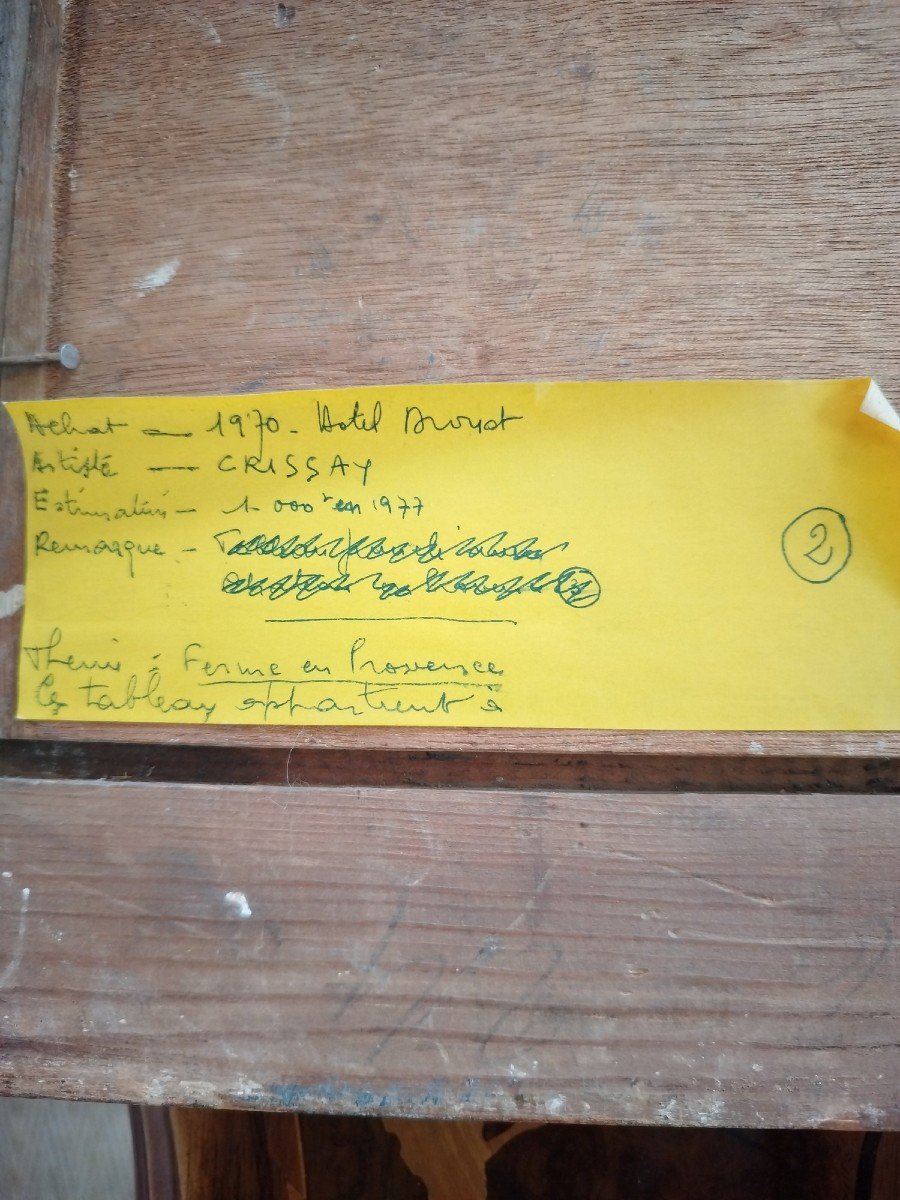 Achat — 1970 - Hotel Drouot
Artiste — CRISSAY
Estimation — 1 000 F en 1977
Remarque -
2
Theme : Ferme en Provence
Ce tableau appartient à